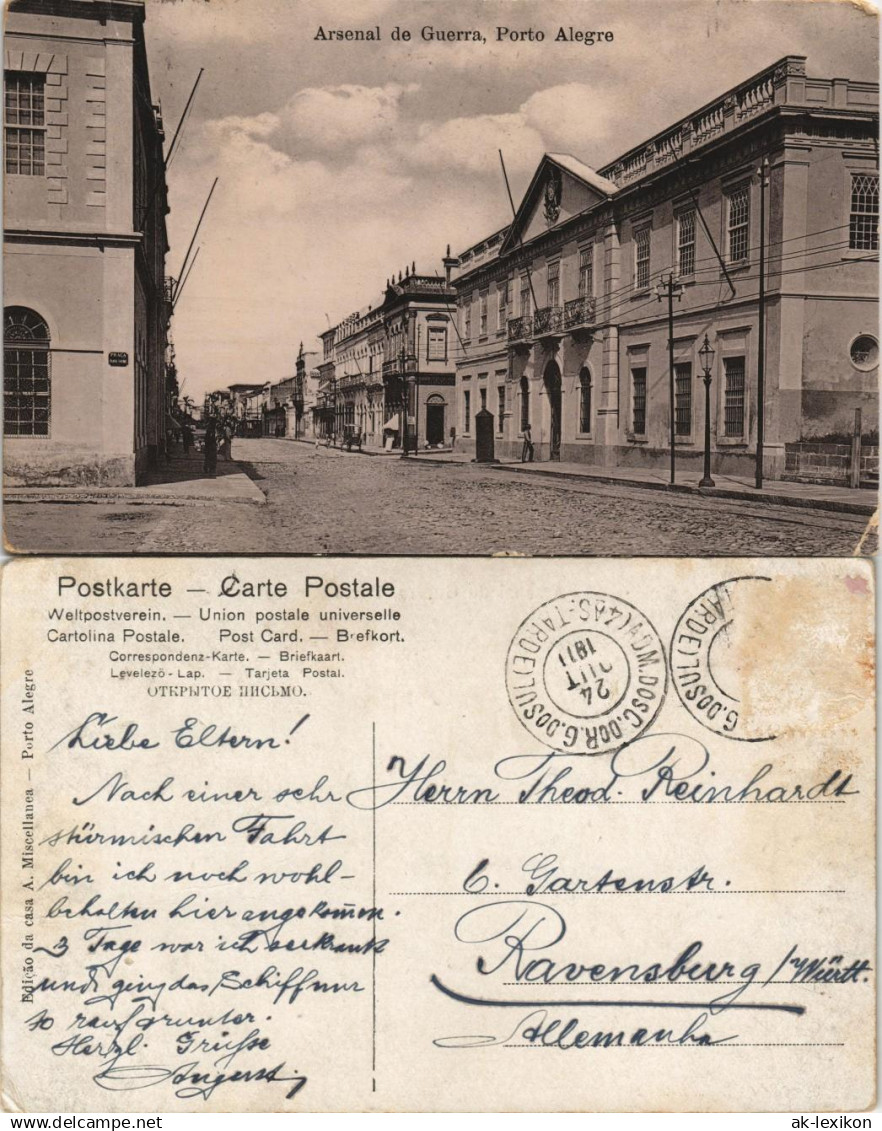 Arsenal de Guerra, Porto Alegre
PRAÇA
Postkarte — Carte Postale
Weltpostverein. — Union postale universelle
Cartolina Postale. Post Card. — Brefkort.
Correspondenz-Karte. — Briefkaart.
Levelezö-Lap. — Tarjeta Postal.
ОТКРЫТОЕ ПИСЬМО.
Edição da casa A. Miscellanea — Porto Alegre
24
OUT
1911
R.G.DOSUL
G.DOSUL
Liebe Eltern!
Nach einer sehr
stürmischen Fahrt
bin ich noch wohl-
behalten hier angekommen.
3 Tage war ich seekrank
und ging das Schiff nur
so rauf grunter.
Herzl. Grüsse
Herrn Theod. Reinhardt
6. Gartenstr.
Ravensburg / Württ.
Allemanha
Delcampe.net
ak-lexikon